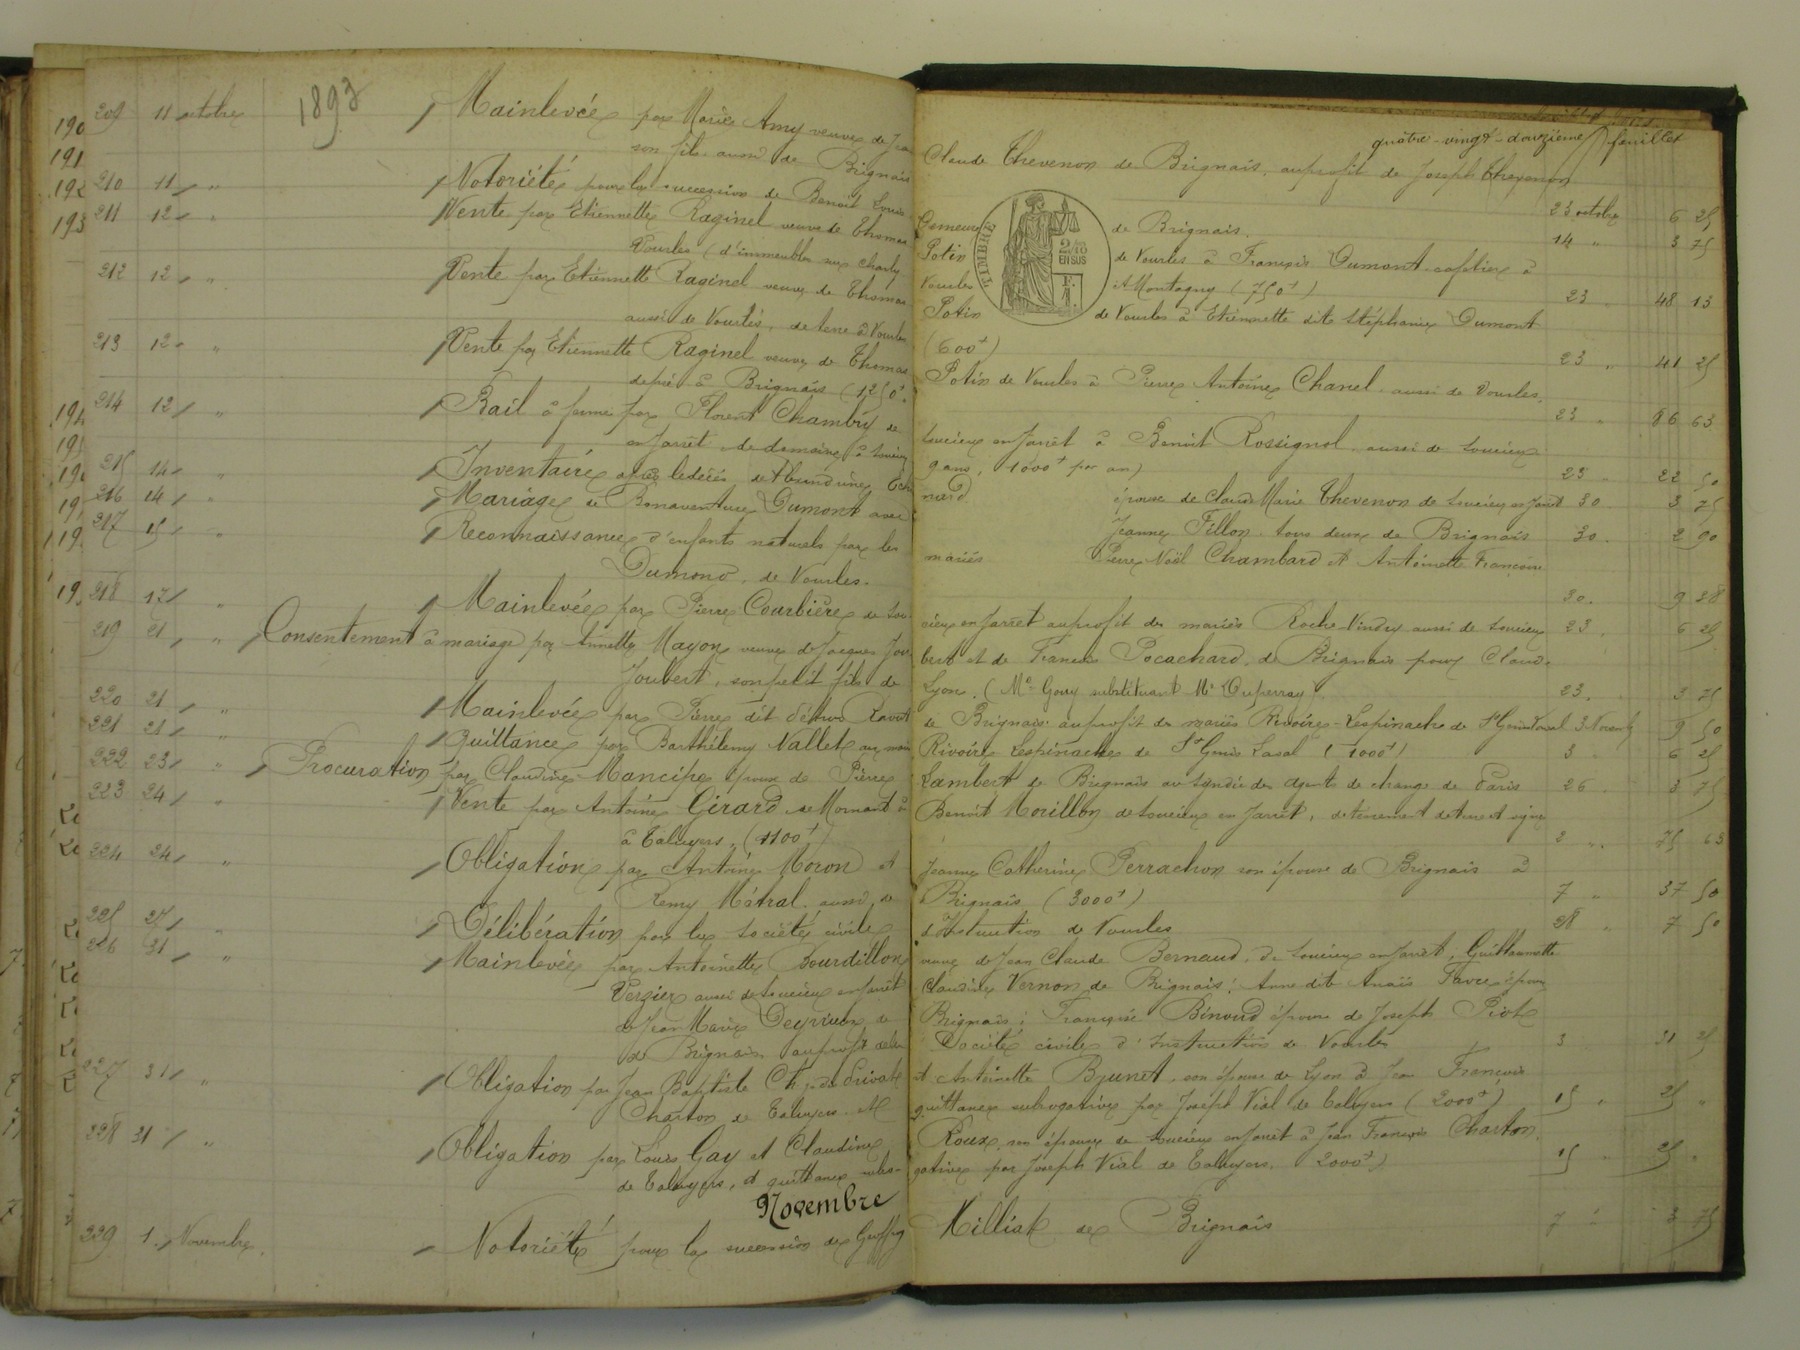 quatre-vingt-douzième feuillet
1893
209 11 octobre Mainlevée par Marie Amy veuve de Jean Claude Thevenon de Brignais, au profit de Joseph Thevenon
son fils aussi de Brignais 23 octobre 6 25
210 11 " Notoriété pour la succession de Benoit Louis de Brignais. 14 " 3 75
211 12 " Vente par Etiennette Raginel veuve de Thomas Potin de Vourles à François Dumont cafetier à
Vourles (d'immeubles sur Charly Vourles et Montagny (750f) 23 " 48 13
212 12 " Vente par Etiennette Raginel veuve de Thomas Potin de Vourles à Etiennette dite Stéphanie Dumont
aussi de Vourles, de terre à Vourles (600f) 23 " 41 25
213 12 " Vente par Etiennette Raginel veuve de Thomas Potin de Vourles à Pierre Antoine Chanel aussi de Vourles,
de pré à Brignais (1250f. 23 " 86 63
214 12 " Bail à ferme par Florent Chambry de Soucieu en Jarrêt à Benoit Rossignol aussi de Soucieu
en Jarrêt de domaine à Soucieu 9 ans, 1000f par an) 23 " 22 50
215 14 " Inventaire après le décès de épouse de Claude Marie Thevenon de Soucieu en Jarrêt 30 3 75
216 14 " Mariage de Bonaventure Dumont avec Jeanne Fillon tous deux de Brignais 30. 2 90
217 15 " Reconnaissance d'enfants naturels par les mariés Pierre Noël Chambard et Antoinette Françoise
Dumond, de Vourles. 30. 9 38
218 17 " Mainlevée par Pierre Courbière de Soucieu en Jarrêt au profit des mariés Roche Vindry aussi de Soucieu 23. 6 25
219 21 " Consentement à mariage par Annette Mayon veuve de Jacques Joubert et de Francois Pocachard, de Brignais pour Claude
Joubert, son petit fils de Lyon. (Me Gouy substituant Me Duperray) 23. 3 75
220 21 " Mainlevée par Pierre dit Pétrus Ravat de Brignais au profit des mariés Rivoire-Lespinache de St Genis Laval 3 Novembre 9 50
221 21 " Quittance par Barthélemy Vallet aux mariés Rivoire Lespinache de St Genis Laval (1000f) 3 6 25
222 23 " Procuration par Claudine Mancipe épouse de Pierre Lambert de Brignais au Syndic des Agents de change de Paris 26. 3 75
223 24 " Vente par Antoine Girard de Mornant à Benoit Morillon de Soucieu en Jarrêt, de tènement de terre et vigne
à Taluyers. (1100f) 2 " 75 63
224 24 " Obligation par Antoine Moron et Jeanne Catherine Perrachon son épouse de Brignais à
Remy Métral aussi de Brignais (3000f) 7 " 37 50
225 27 " Délibération par la Société civile d'Instruction de Vourles 28 " 7 50
226 31 " Mainlevée par Antoinette Bourdillon veuve de Jean Claude Bernaud, de Soucieu en Jarrêt, Guillaumette
Verzier aussi de Soucieu en Jarrêt Claudine Vernon de Brignais; Anne dite Anaïs Favre épouse
de Jean Marie Deyrieux de Brignais; Françoise Binoud épouse de Joseph Piot
de Brignais au profit de la Société civile d'Instruction de Vourles 3 31 25
227 31 " Obligation par Jean Baptiste et Antoinette Brunet, son épouse de Lyon à Jean François
Charton de Taluyers et quittance subrogative par Joseph Vial de Taluyers (2000f) 15 " 25 "
228 31 " Obligation par Louis Gay et Claudine Roux, son épouse de Soucieu en Jarrêt à Jean François Charton
de Taluyers, et quittance subrogative par Joseph Vial de Taluyers. 2000f) 15 " 25 "
Novembre
229 1. Novembre. Notoriété pour la succession de Milliat de Brignais 7 " 3 75
TIMBRE
2/10
EN SUS